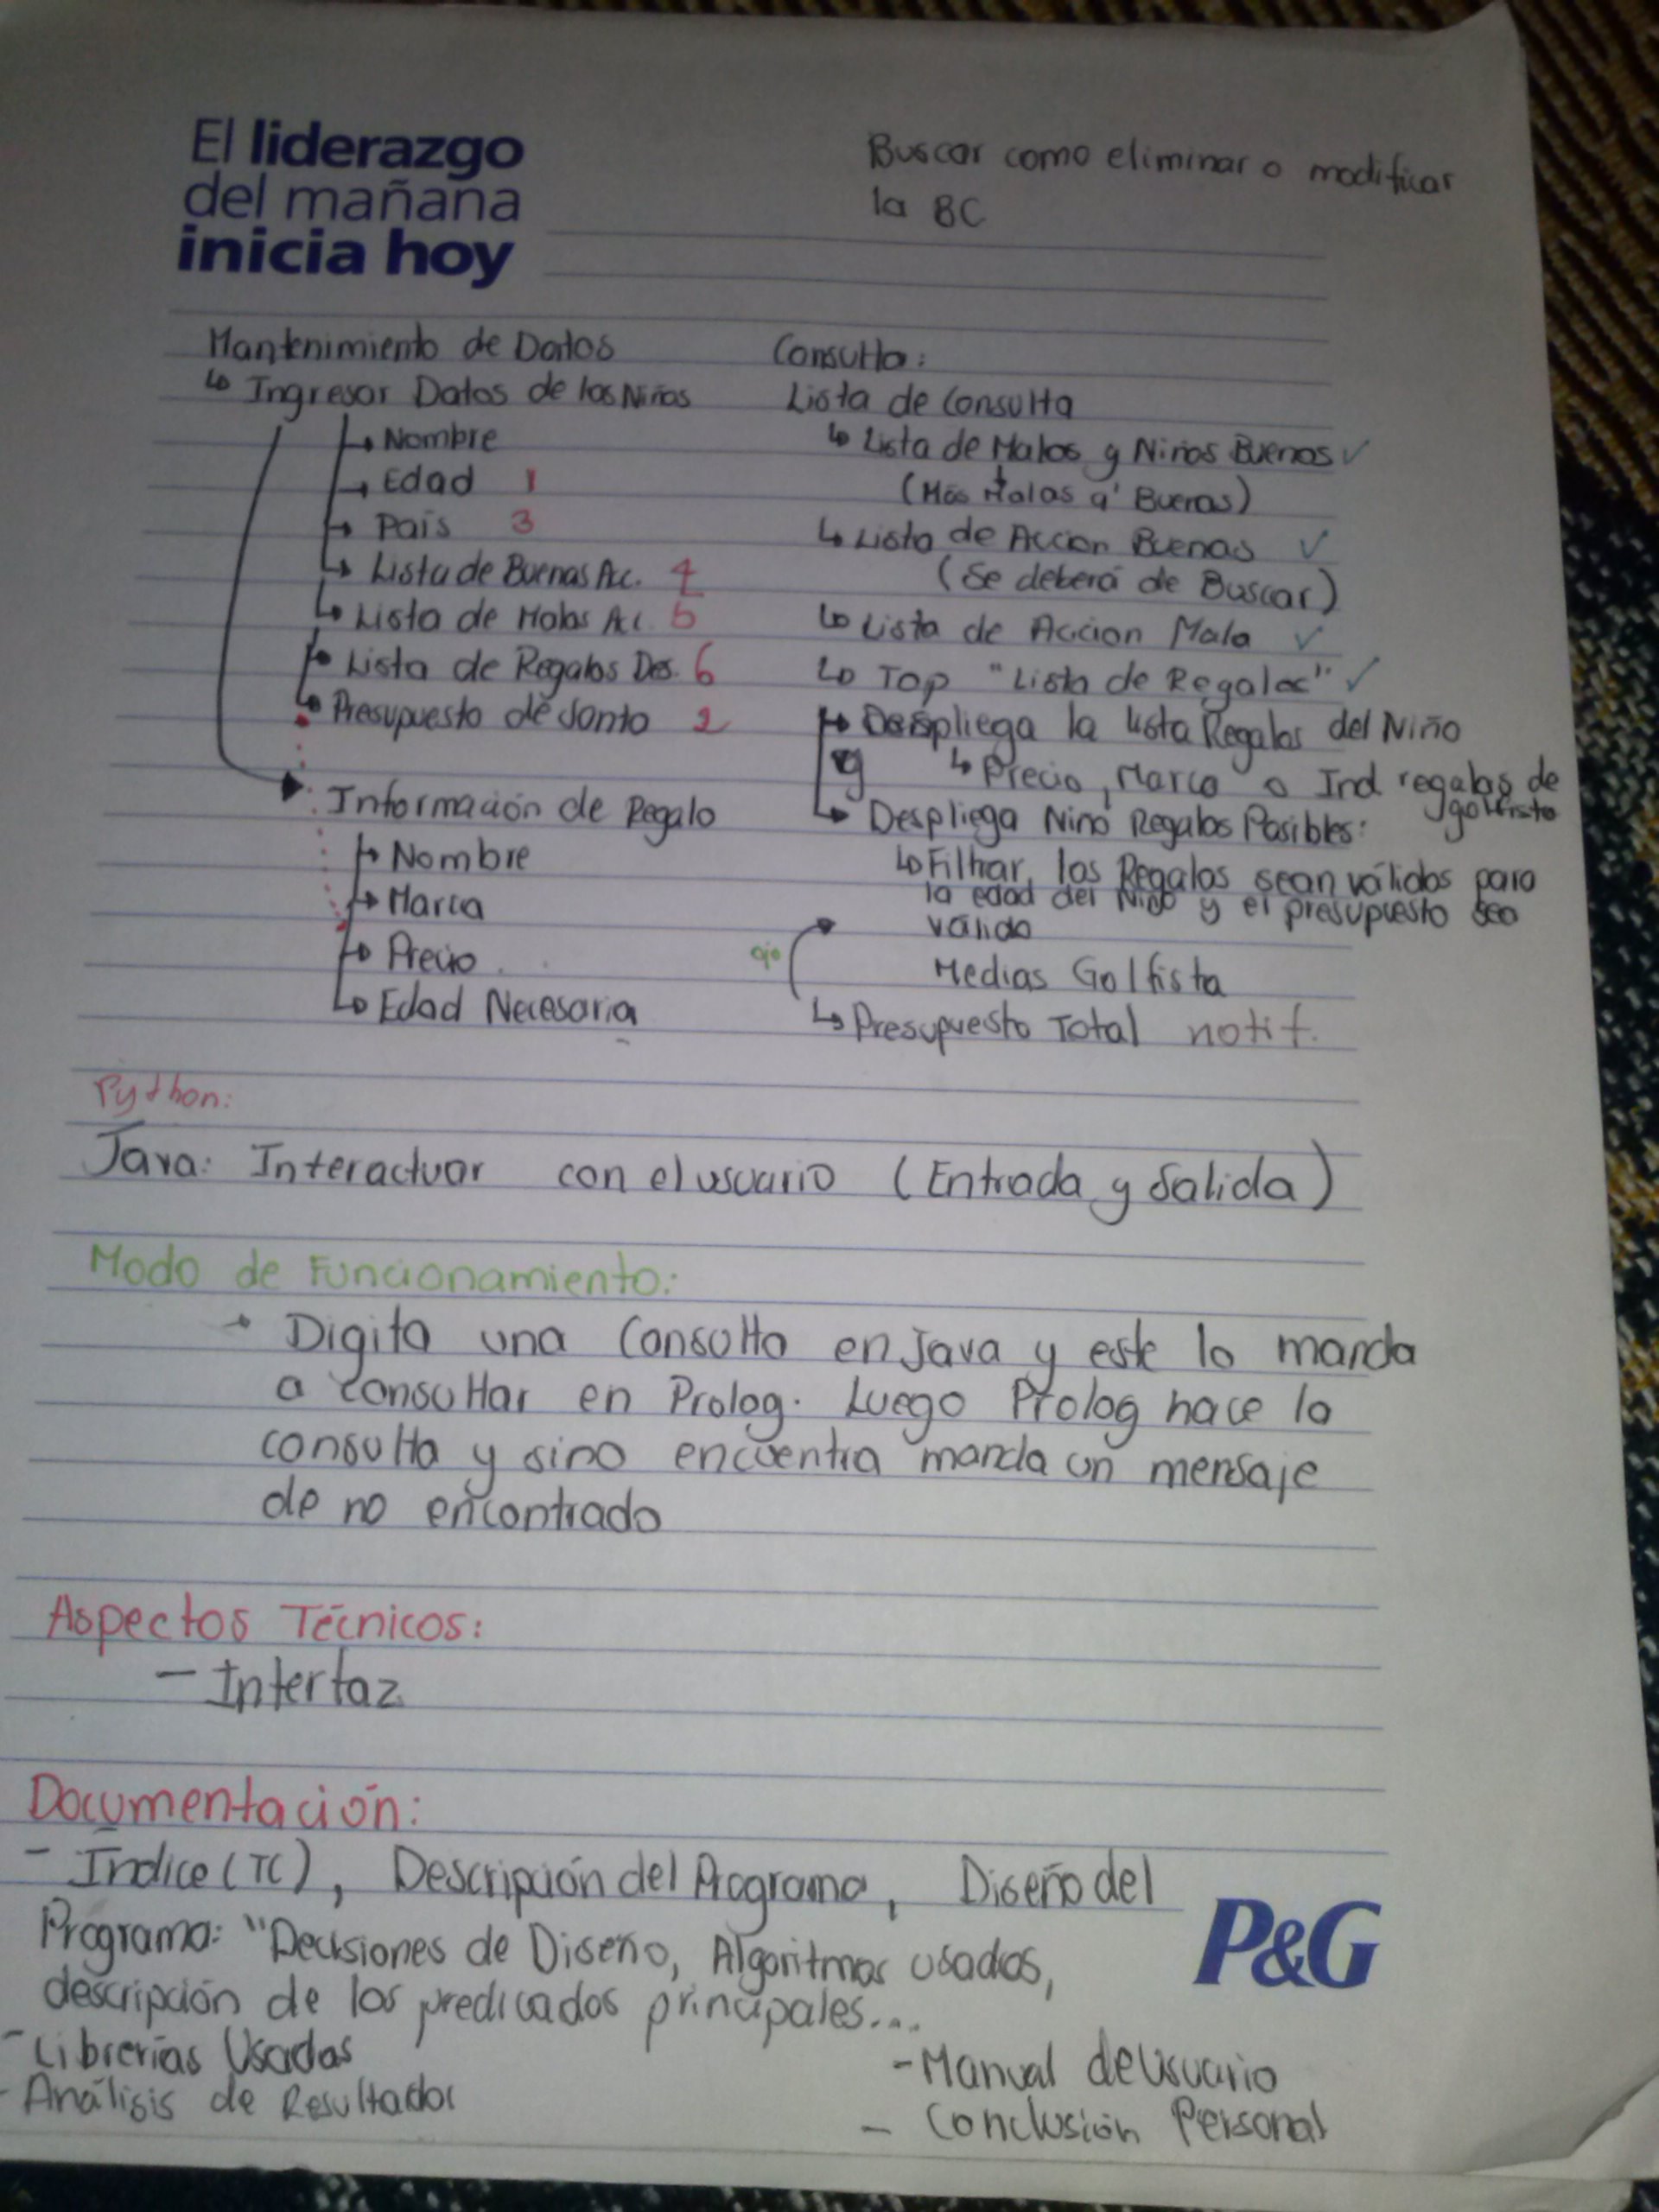 El liderazgo
del mañana
inicia hoy
Buscar como eliminar o modificar
la BC
Mantenimiento de Datos
↳ Ingresar Datos de los Niños
→ Nombre
→ Edad 1
→ País 3
↳ Lista de Buenas Acc. 4
↳ Lista de Malas Acc. 5
→ Lista de Regalos Des. 6
↳ Presupuesto de Santo 2
Información de Regalo
→ Nombre
→ Marca
→ Precio
↳ Edad Necesaria
Consulta:
Lista de Consulta
↳ Lista de Malos y Niños Buenos ✓
(Más Malas q' Buenas)
↳ Lista de Accion Buenas ✓
(Se deberá de Buscar)
↳ Lista de Accion Mala ✓
↳ Top "Lista de Regalos" ✓
→ Despliega la lista Regalos del Niño
y ↳ Precio, Marca o Ind regalas de
golfista
↳ Despliega Nino Regalos Posibles:
↳ Filtrar, los Regalos sean válidos para
la edad del Niño y el presupuesto sea
válido
Medias Golfista
ojo
↳ Presupuesto Total notif.
Python:
Java: Interactuar con el usuario (Entrada y Salida)
Modo de Funcionamiento:
Digita una Consulta en Java y este lo manda
a consultar en Prolog. Luego Prolog hace la
consulta y sino encuentra manda un mensaje
de no encontrado
Aspectos Técnicos:
- Interfaz
Documentación:
- Índice (TC), Descripción del Programa, Diseño del
Programa: "Decisiones de Diseño, Algoritmos usados,
descripción de los predicados principales...
- Librerías Usadas
- Análisis de Resultados
- Manual de Usuario
- Conclusión Personal
P&G